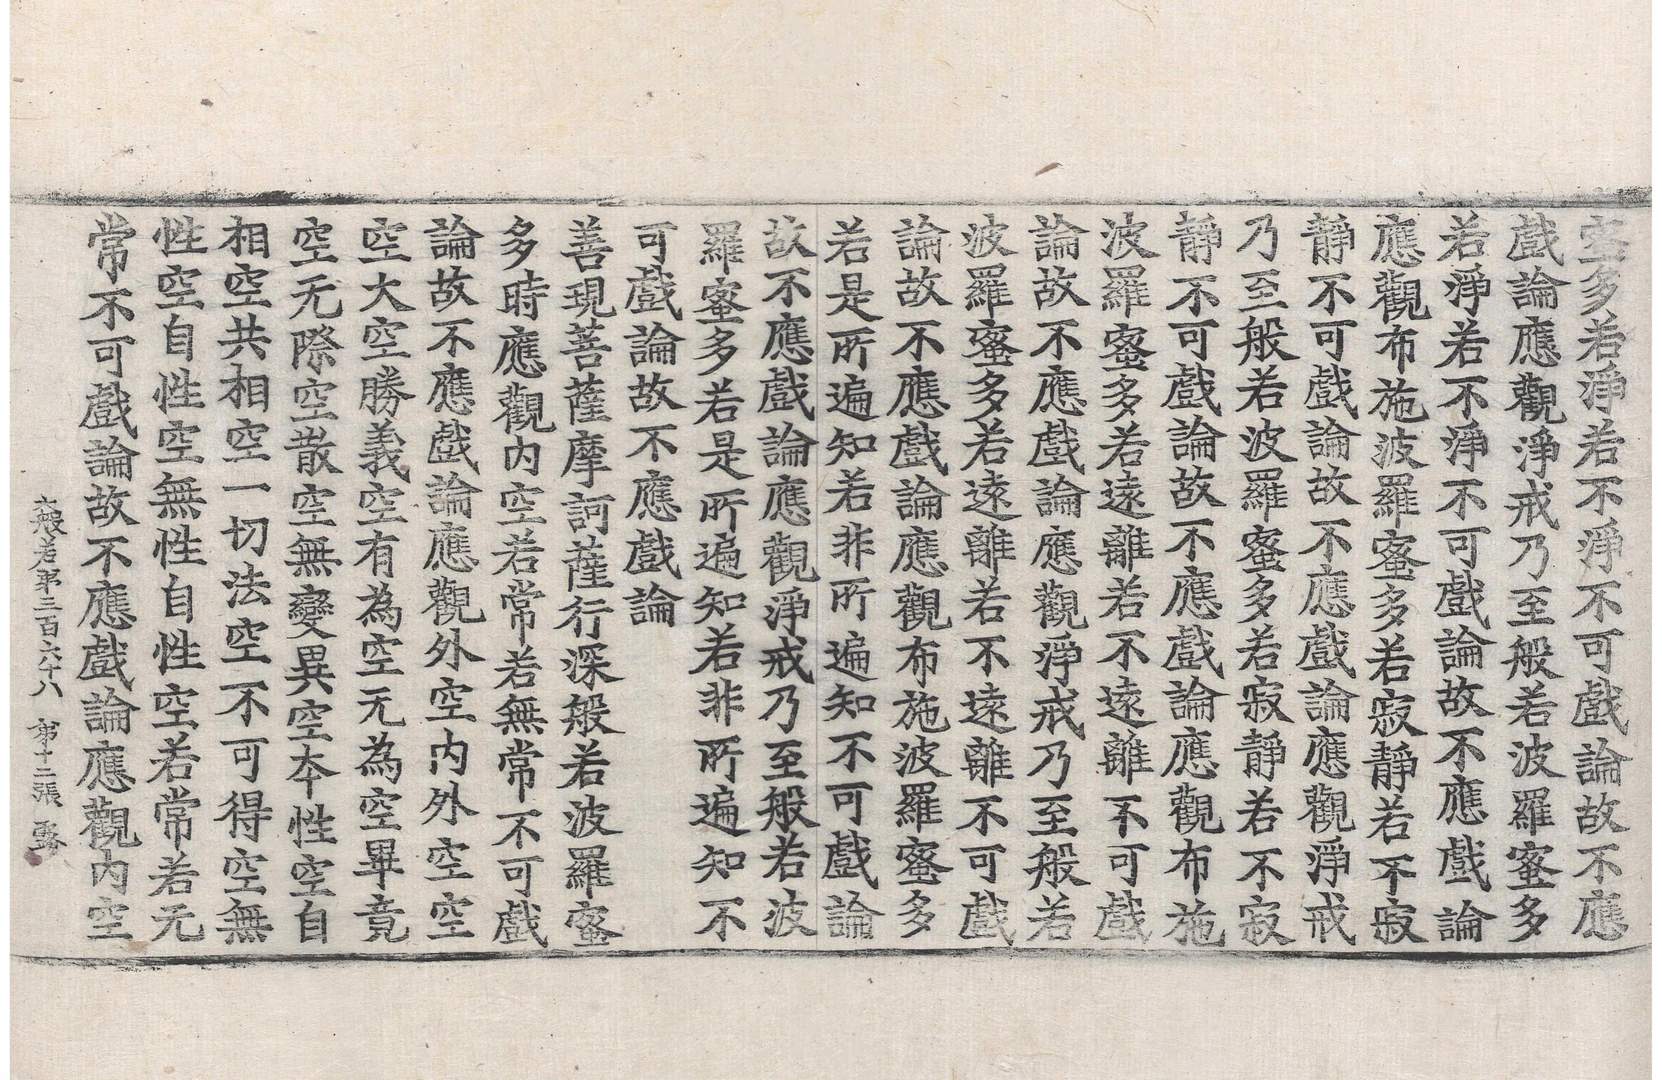 蜜多若淨若不淨不可戲論故不應
戲論應觀淨戒乃至般若波羅蜜多
若淨若不淨不可戲論故不應戲論
應觀布施波羅蜜多若寂靜若不寂
靜不可戲論故不應戲論應觀淨戒
乃至般若波羅蜜多若寂靜若不寂
靜不可戲論故不應戲論應觀布施
波羅蜜多若遠離若不遠離不可戲
論故不應戲論應觀淨戒乃至般若
波羅蜜多若遠離若不遠離不可戲
論故不應戲論應觀布施波羅蜜多
若是所遍知若非所遍知不可戲論
故不應戲論應觀淨戒乃至般若波
羅蜜多若是所遍知若非所遍知不
可戲論故不應戲論
善現菩薩摩訶薩行深般若波羅蜜
多時應觀內空若常若無常不可戲
論故不應戲論應觀外空內外空空
空大空勝義空有為空无為空畢竟
空无際空散空無變異空本性空自
相空共相空一切法空不可得空無
性空自性空無性自性空若常若无
常不可戲論故不應戲論應觀內空
大般若第三百六十八 第十二張 露